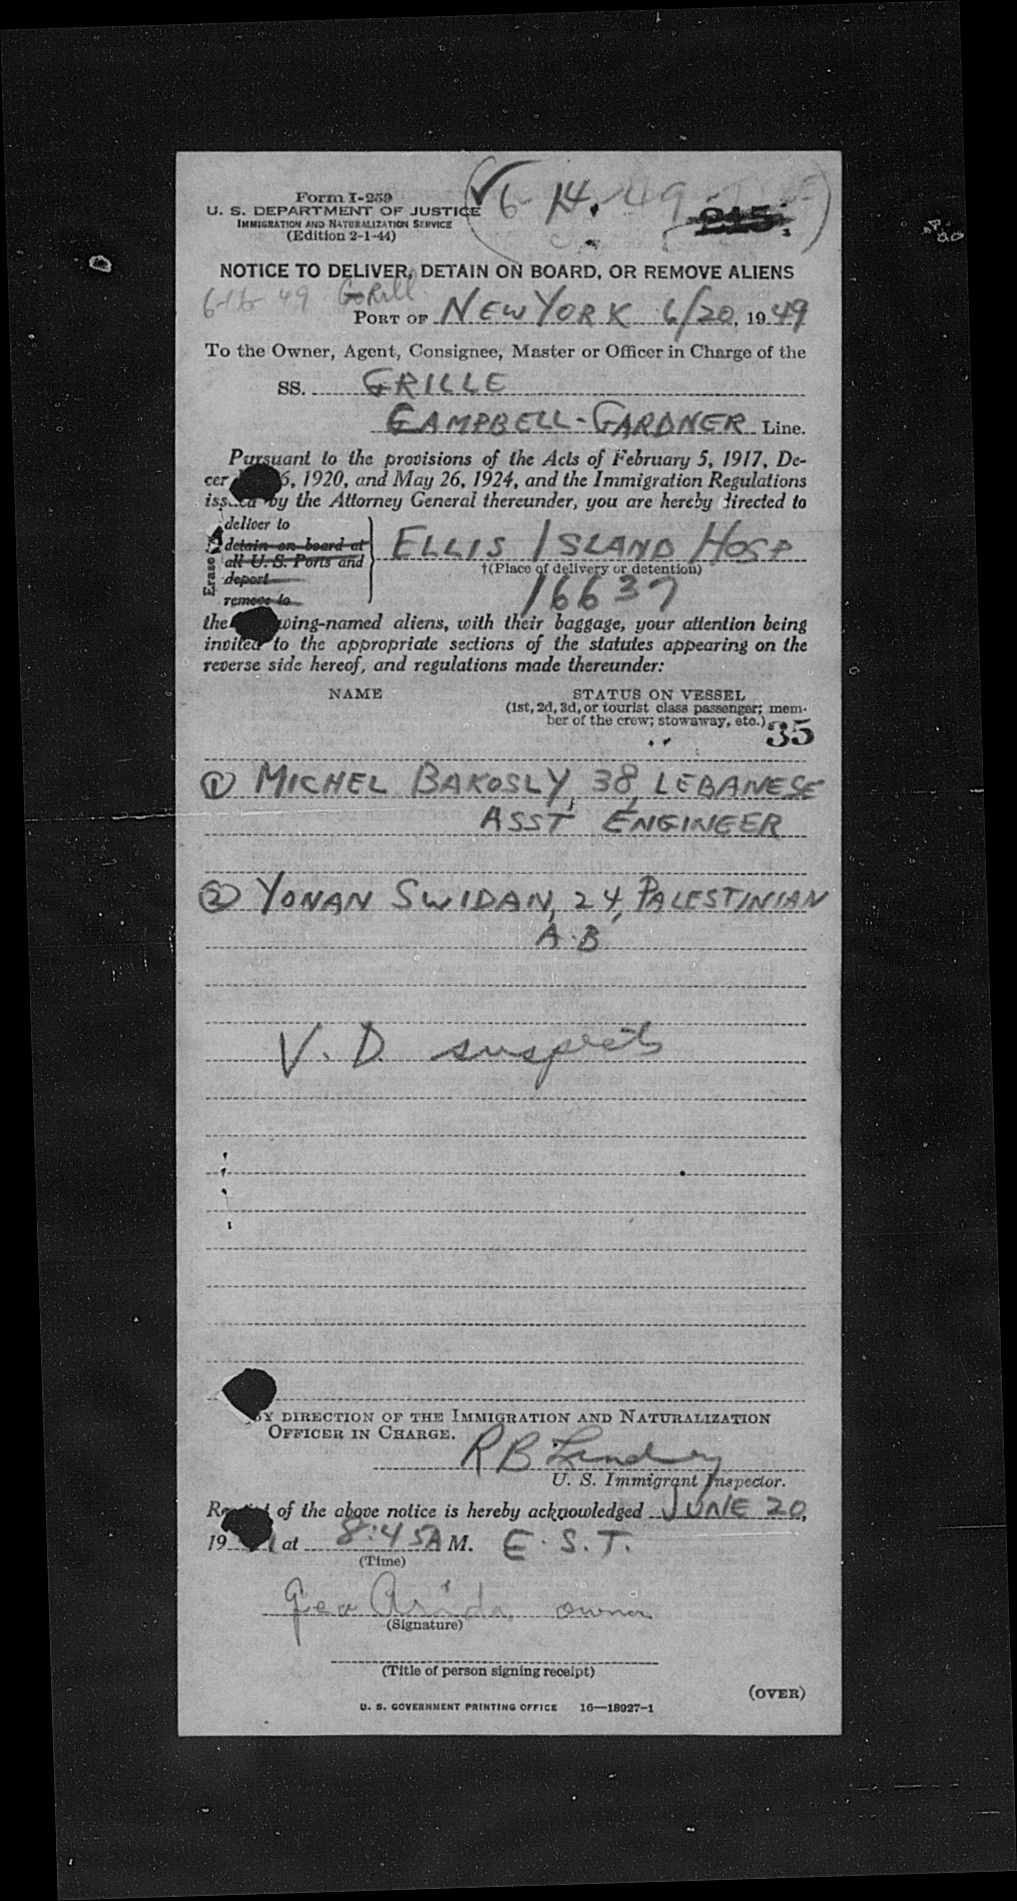 Form I-259
U. S. DEPARTMENT OF JUSTICE
IMMIGRATION AND NATURALIZATION SERVICE
(Edition 2-1-44)
6 14. 49
215
NOTICE TO DELIVER, DETAIN ON BOARD, OR REMOVE ALIENS
6-16 49 Grill
PORT OF NEW YORK 6/20, 1949
To the Owner, Agent, Consignee, Master or Officer in Charge of the
SS. GRILLE
CAMPBELL-GARDNER Line.
Pursuant to the provisions of the Acts of February 5, 1917, De-
cer 6, 1920, and May 26, 1924, and the Immigration Regulations
issued by the Attorney General thereunder, you are hereby directed to
Erase
deliver to
detain on board at
all U. S. Ports and
deport
remove to
ELLIS ISLAND HOSP
†(Place of delivery or detention)
16637
the wing-named aliens, with their baggage, your attention being
invited to the appropriate sections of the statutes appearing on the
reverse side hereof, and regulations made thereunder:
NAME STATUS ON VESSEL
(1st, 2d, 3d, or tourist class passenger; mem-
ber of the crew; stowaway, etc.)
35
① MICHEL BAKOSLY, 38, LEBANESE
ASST ENGINEER
② YONAN SWIDAN, 24, PALESTINIAN
A.B
V. D. suspects
BY DIRECTION OF THE IMMIGRATION AND NATURALIZATION
OFFICER IN CHARGE.
R B
U. S. Immigrant Inspector.
of the above notice is hereby acknowledged JUNE 20,
19 at 8:45 A M. E.S.T.
(Time)
Geo Arida, owner
(Signature)
(Title of person signing receipt)
(OVER)
U. S. GOVERNMENT PRINTING OFFICE 16—18927-1